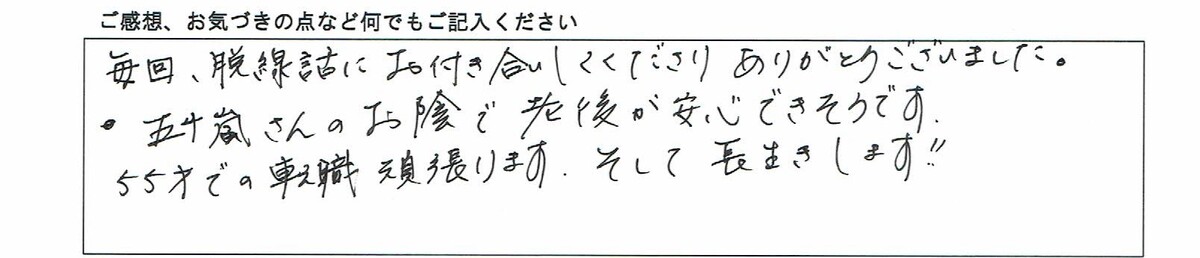 ご感想、お気づきの点など何でもご記入ください
毎回、脱線話にお付き合いしてくださり ありがとうございました。
・五十嵐さんのお陰で 老後が安心できそうです.
55才での転職 頑張ります. そして 長生きします!!